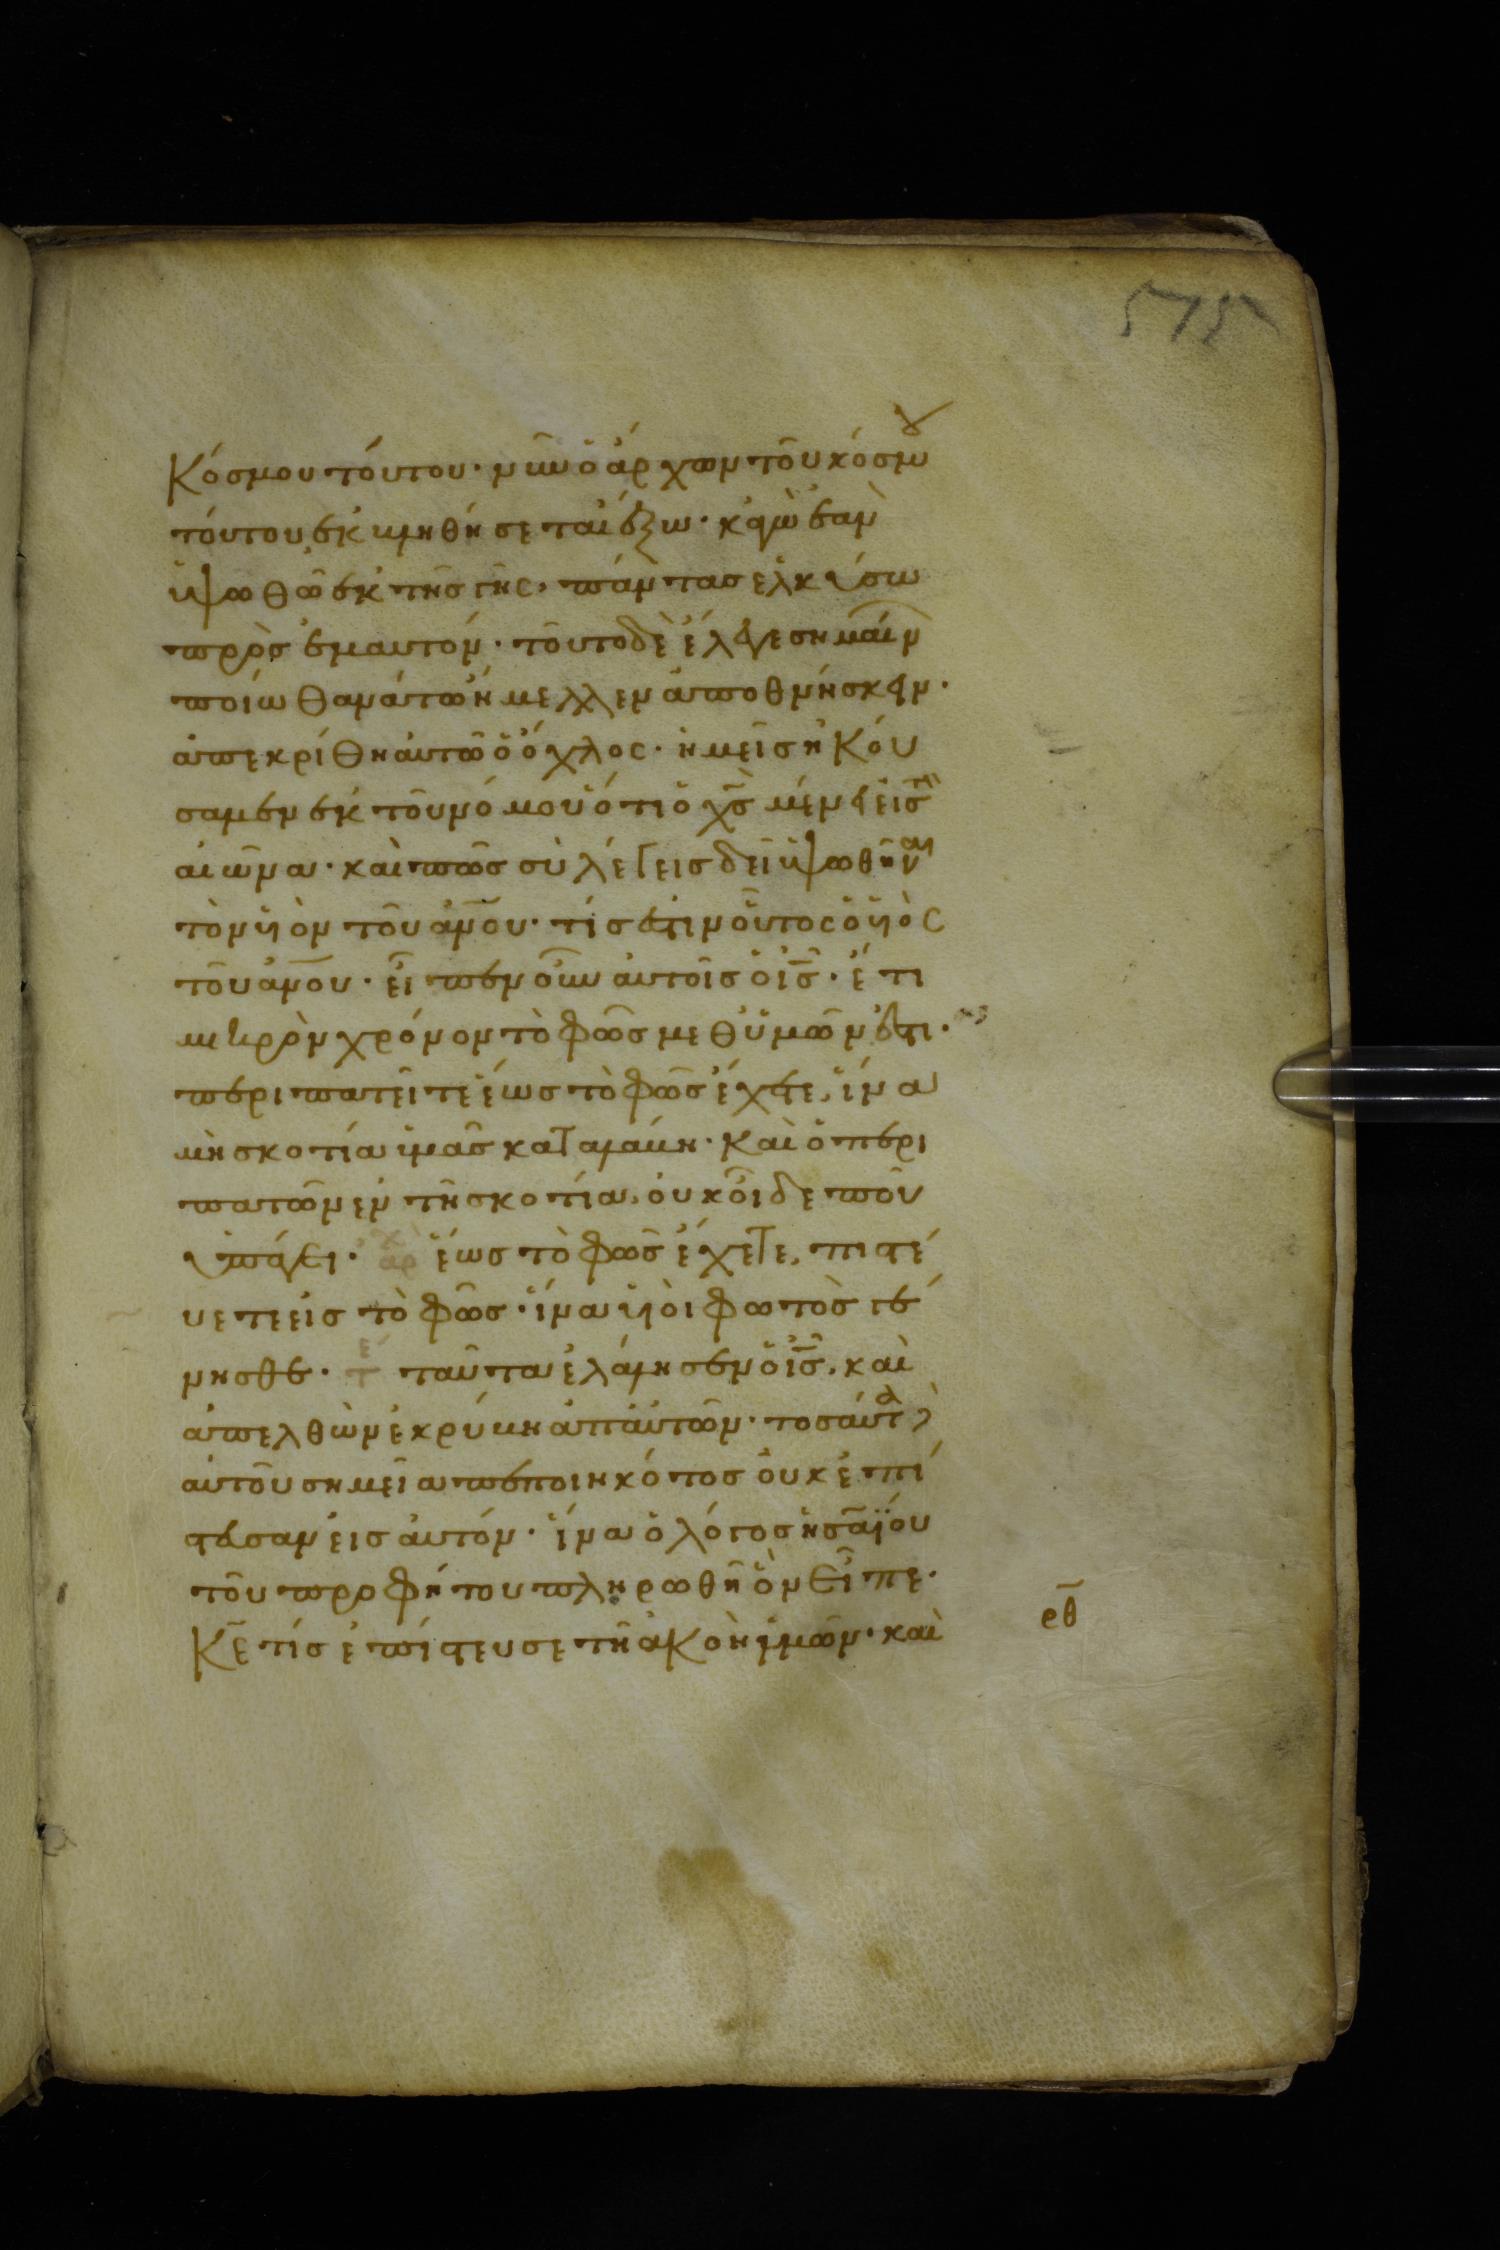 575
κόσμου τούτου· νῦν ὁ ἄρχων τοῦ κόσμου
τούτου ἐκβληθήσεται ἔξω· κἀγὼ ἐὰν
ὑψωθῶ ἐκ τῆς γῆς, πάντας ἑλκύσω
πρὸς ἐμαυτόν· τοῦτο δὲ ἔλεγε σημαίνων
ποίω θανάτω ἤμελλεν ἀποθνήσκειν·
ἀπεκρίθη αὐτῶ ὁ ὄχλος· ἡμεῖς ἠκού
σαμεν ἐκ τοῦ νόμου ὅτι ὁ χς μένει εἰς τὸν
αἰῶνα· καὶ πῶς σὺ λέγεις δεῖ ὑψωθῆναι
τὸν υἱὸν τοῦ ἀνου· τίς ἐστιν οὗτος ὁ υἱὸς
τοῦ ἀνου· εἶπεν οὖν αὐτοῖς ὁ ις· ἔτι
μικρὸν χρόνον τὸ φῶς μεθ' ὑμῶν ἐστι·
περιπατεῖτε ἕως τὸ φῶς ἔχετε, ἵνα
μὴ σκοτία ὑμᾶς καταλάβη· καὶ ὁ περι
πατῶν ἐν τῆ σκοτία, οὐκ οἶδε ποῦ
ὑπάγει· ἀρχ ἕως τὸ φῶς ἔχετε, πιστε
ύετε εἰς τὸ φῶς· ἵνα υἱοὶ φωτὸς γέ
νησθε· τέ ταῦτα ἐλάλησεν ὁ ις, καὶ
ἀπελθὼν ἐκρύβη ἀπ' αὐτῶν· τοσαῦτα δὲ
αὐτοῦ σημεῖα πεποιηκότος οὐκ ἐπί
στευσαν εἰς αὐτόν· ἵνα ὁ λόγος ἡσαΐου
τοῦ προφήτου πληρωθῆ ὃν εἶπε·
κε τίς ἐπίστευσε τῆ ἀκοῆ ἡμῶν· καὶ
ρθ